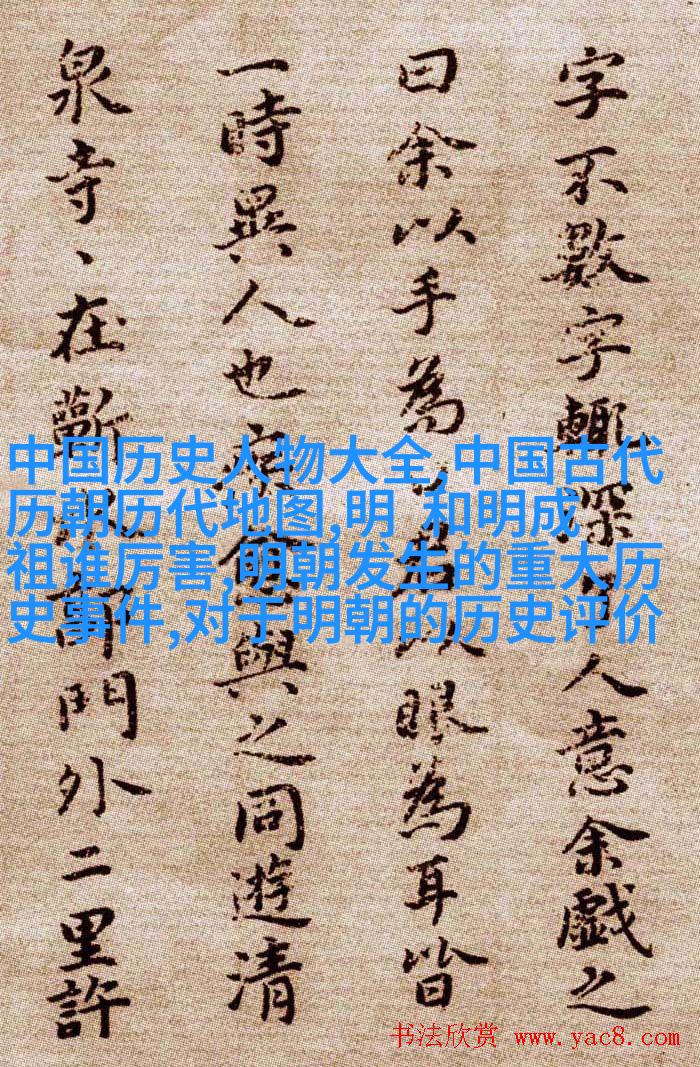 字不數字輒深人意余戲之
曰余以手為以眼為耳皆
一時異人也疾與之同遊清
泉寺、在蘄門外二里許
中国历史人物大全,中国古代
历朝历代地图,明 和明成
祖谁厉害,明朝发生的重大历
史事件,对于明朝的历史评价
书法欣赏 www.yac8.com